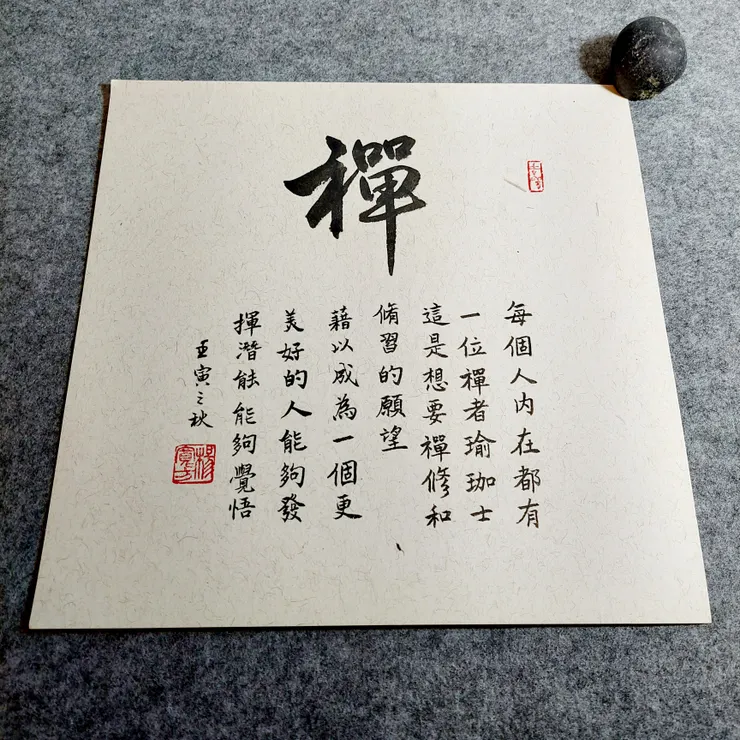 禪
每個人内在都有
一位禪者瑜珈士
這是想要禪修和
脩習的願望
藉以成為一個更
美好的人能夠發
揮潛能能夠覺悟
壬寅之秋